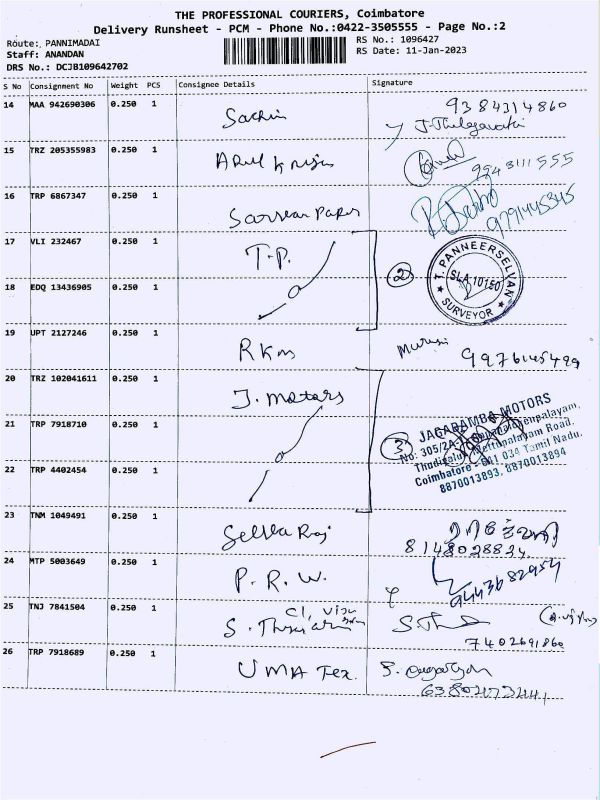 THE PROFESSIONAL COURIERS, Coimbatore
Delivery Runsheet - PCM - Phone No.:0422-3505555 - Page No.:2
Route: PANNIMADAI RS No.: 1096427
Staff: ANANDAN RS Date: 11-Jan-2023
DRS No.: DCJB109642702
S No Consignment No Weight PCS Consignee Details Signature
14 MAA 942690306 0.250 1 Sachin 9384314860
J. Thilagavathi
15 TRZ 205355983 0.250 1 9943111555
16 TRP 6867347 0.250 1 Saravan Paper 9791445345
17 VLI 232467 0.250 1 T.P. 2 T. PANNEERSELVAN
SLA 10150
SURVEYOR
18 EDQ 13436905 0.250 1
19 UPT 2127246 0.250 1 RKM Murugan
20 TRZ 102041611 0.250 1 J. Motors
21 TRP 7918710 0.250 1 3 JAGARAMBA MOTORS
No: 305/2A
Thudiyalur Mettupalayam Road,
Coimbatore - 641 034 Tamil Nadu.
8870013893, 8870013894
22 TRP 4402454 0.250 1
23 TNM 1049491 0.250 1 Selva Raj
8148028824
24 MTP 5003649 0.250 1 P. R. W. 9443682954
25 TNJ 7841504 0.250 1 S. Th
7402691860
26 TRP 7918689 0.250 1 UMA Tex.